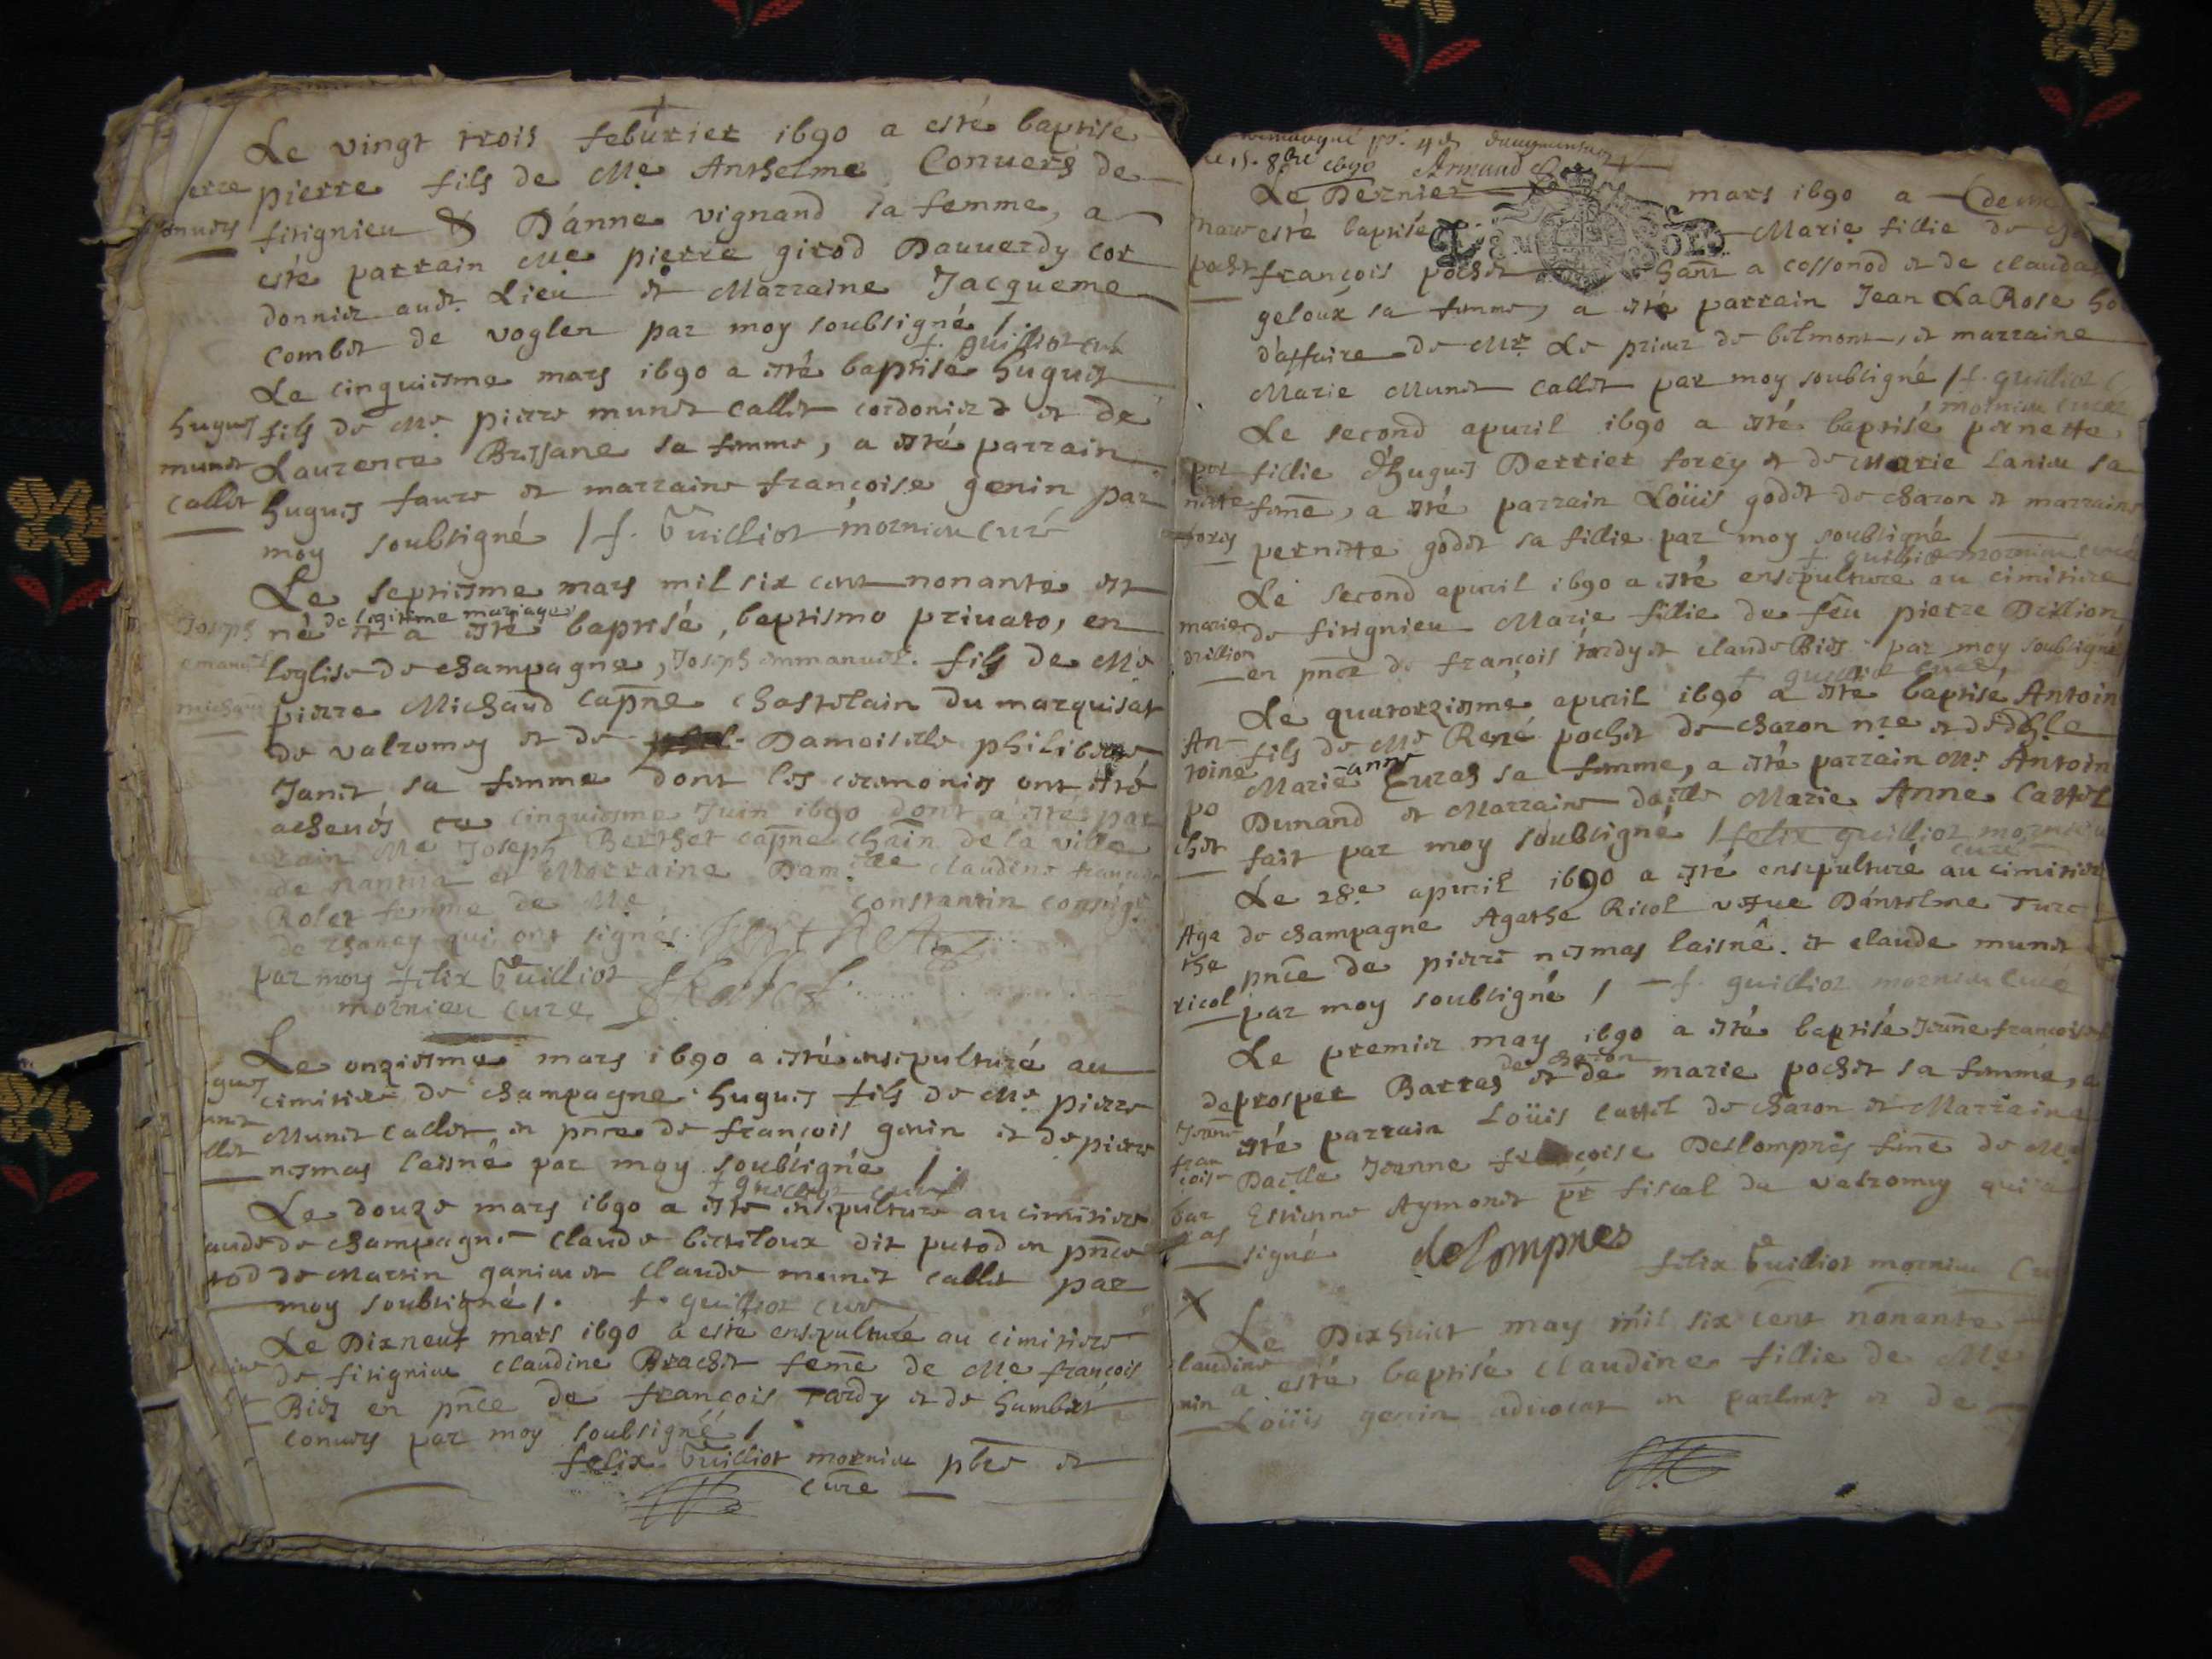 Le vingt trois feburier 1690 a esté baptisé
pierre fils de Me Anthelme Conuers de
fitignieu & D'anne vignand sa femme, a
esté parrain Me pierre girod Dauuerdy cor
donnier audt Lieu et Marraine Jacqueme
Combet de voglen par moy soubsigné /.
f. guilliot curé
Le cinquiesme mars 1690 a esté baptisé hugues
hugues
munet
callet
fils de Me pierre munet callet cordonier et de
Laurence Brissane sa femme, a esté parrain
hugues faure et marraine françoise genin par
moy soubsigné / f. Guilliot mornieu curé
Le septiesme mars mil six cent nonante est
de legitime mariage
né et a esté baptisé, baptismo priuato, en
Joseph
emanuel
michaud
leglise de champagne, Joseph emmanuel. fils de Me
pierre Michaud capne chastelain du marquisat
de valromey et de Damoiselle philiberte
Janet sa femme dont les ceremonies ont esté
acheués ce cinquiesme Juin 1690 dont a esté par
rain Me Joseph Berthet capne chain de la ville
de nantua et Marraine Dam.lle claudine
Rolet femme de Me Constantin
qui ont signés. Berthet
par moy felix Guilliot
mornieu cure
Le onziesme mars 1690 a esté ensepulturé au
cimitiere de champagne hugues fils de Me pierre
Munet callet en pnce de françois genin et de pierre
nesmas laisné par moy soubsigné /.
f guilliot curé
Le douze mars 1690 a esté ensepulturé au cimitiere
de champagne Claude berteloux dit putod en pnce
de Martin ganieu et Claude munet callet par
moy soubsigné /. f. guilliot cure
Le Dixneuf mars 1690 a esté ensepulturé au cimitiere
de fitignieu claudine Brachet feme de Me françois
Bies en pnce de françois tardy et de humbert
conuers par moy soubsigné /
felix Guilliot mornieu pbre et
cure
le 15. 8bre 1690 Armand
Le Dernier mars 1690 a
esté baptisé Marie fillie de
françois pochet a cossonod et de clauda
geloux sa femme, a esté parrain Jean La Rose ho
d'affaire de Mr Le prieur de belmont, et marraine
Marie Munet callet par moy soubsigné / f. guilliot
mornieu curé
Le second apuril 1690 a esté baptisé pernette
per
nette
forey
fillie d'hugues Derrier forey et de Marie Lanieu sa
feme, a esté parrain Loüis godet de charon et marraine
pernette godet sa fillie par moy soubsigné /
f. guilliot mornieu curé
Le second apuril 1690 a esté ensepulturé au cimitiere
marie
drillion
de fitignieu Marie fillie de feu pierre Drillion
en pnce de françois tardy et claude Bies par moy soubsigné
f guilliot curé
Le quatorziesme apuril 1690 a esté baptisé Antoin
An
toine
po
chet
fils de Me René pochet de charon nre et de dlle
Marie anne Curas sa femme, a esté parrain Me Antoin
Dunand et Marraine dlle Marie Anne Cattel
fait par moy soubsigné / felix guilliot mornieu
curé
Le 28e apuril 1690 a esté ensepulturé au cimitiere
Aga
the
ricol
de champagne Agathe Ricol vefue D'antelme Turc
pnce de pierre nesmas laisné. et claude munet
par moy soubsigné / f. guilliot mornieu curé
Le premier may 1690 a esté baptisé Jeanne françoise
de charon
de prosper Barras et de marie pochet sa femme, a
Jeanne
fran
coise
bar
ras
esté parrain Loüis cattel de charon et Marraine
Dalle Jeanne françoise Deslompnes feme de Me
Estienne Aymonet pr fiscal du valromey qui a
signé delompnes
felix Guilliot mornieu
Le Dixhuict may mil six cent nonante
a esté baptisé claudine fillie de Me
Loüis genin aduocat en parlemt et de